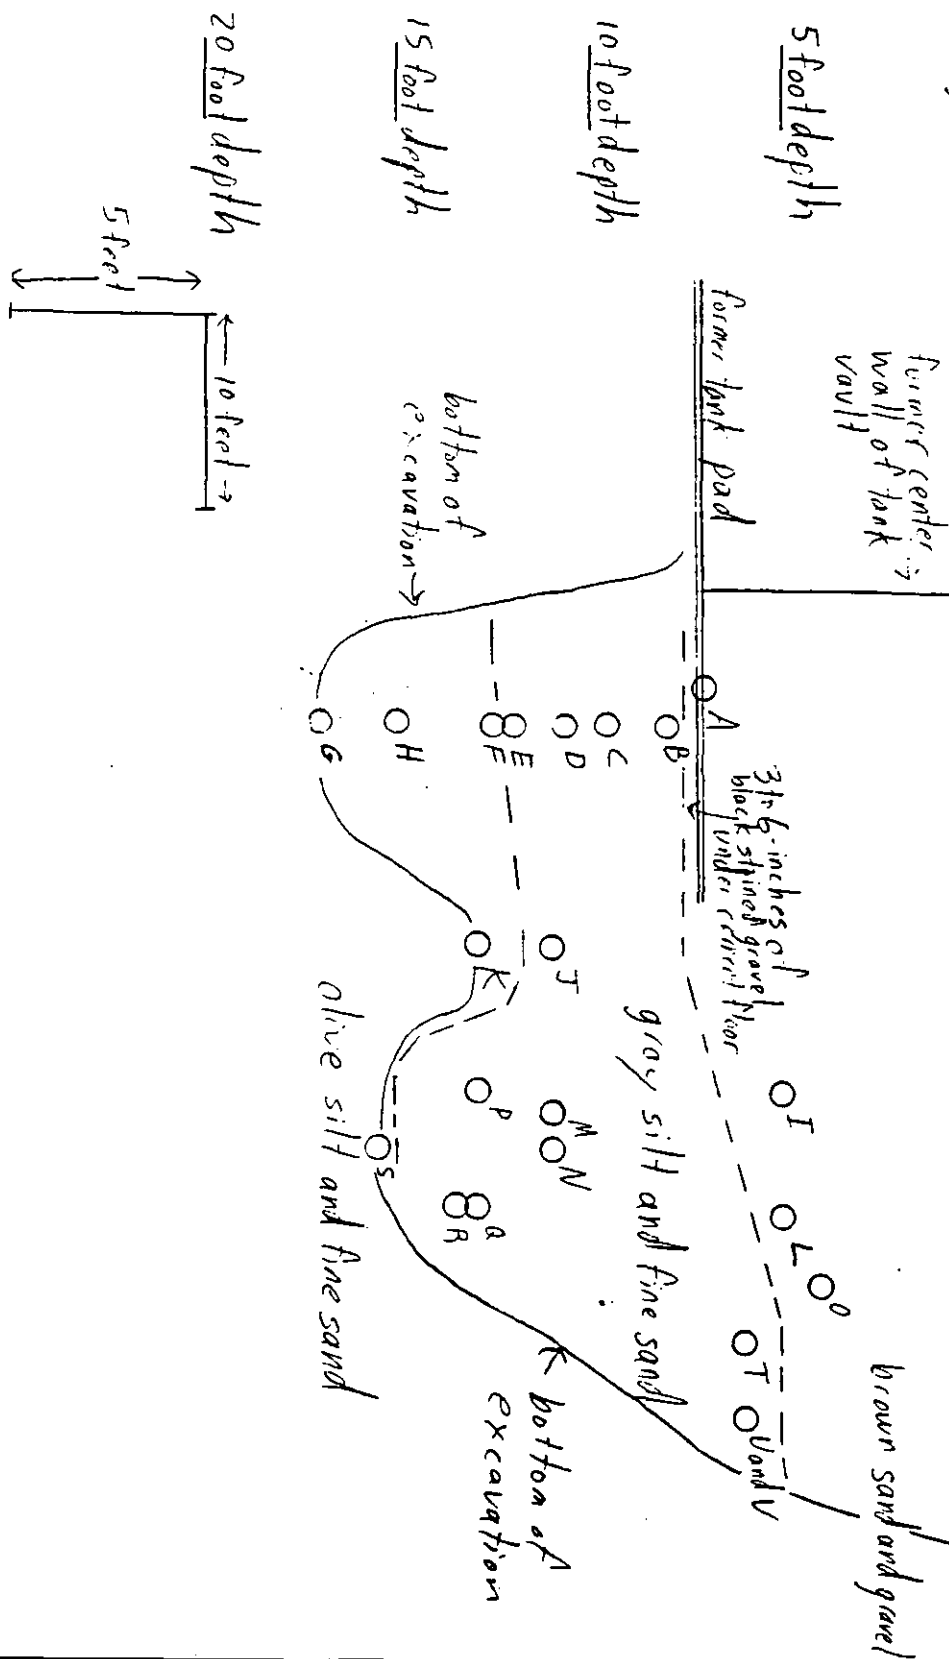 5 foot depth
10 foot depth
15 foot depth
20 foot depth
5 feet
← 10 feet →
former center →
wall of tank
vault
former tank pad
bottom of
excavation →
A
B
C
D
E
F
H
G
3 to 6-inches of
black stained gravel
under cement floor
J
K
gray silt and fine sand
olive silt and fine sand
I
L
O
M
N
P
Q
R
S
T
U and V
brown sand and gravel
bottom of
excavation